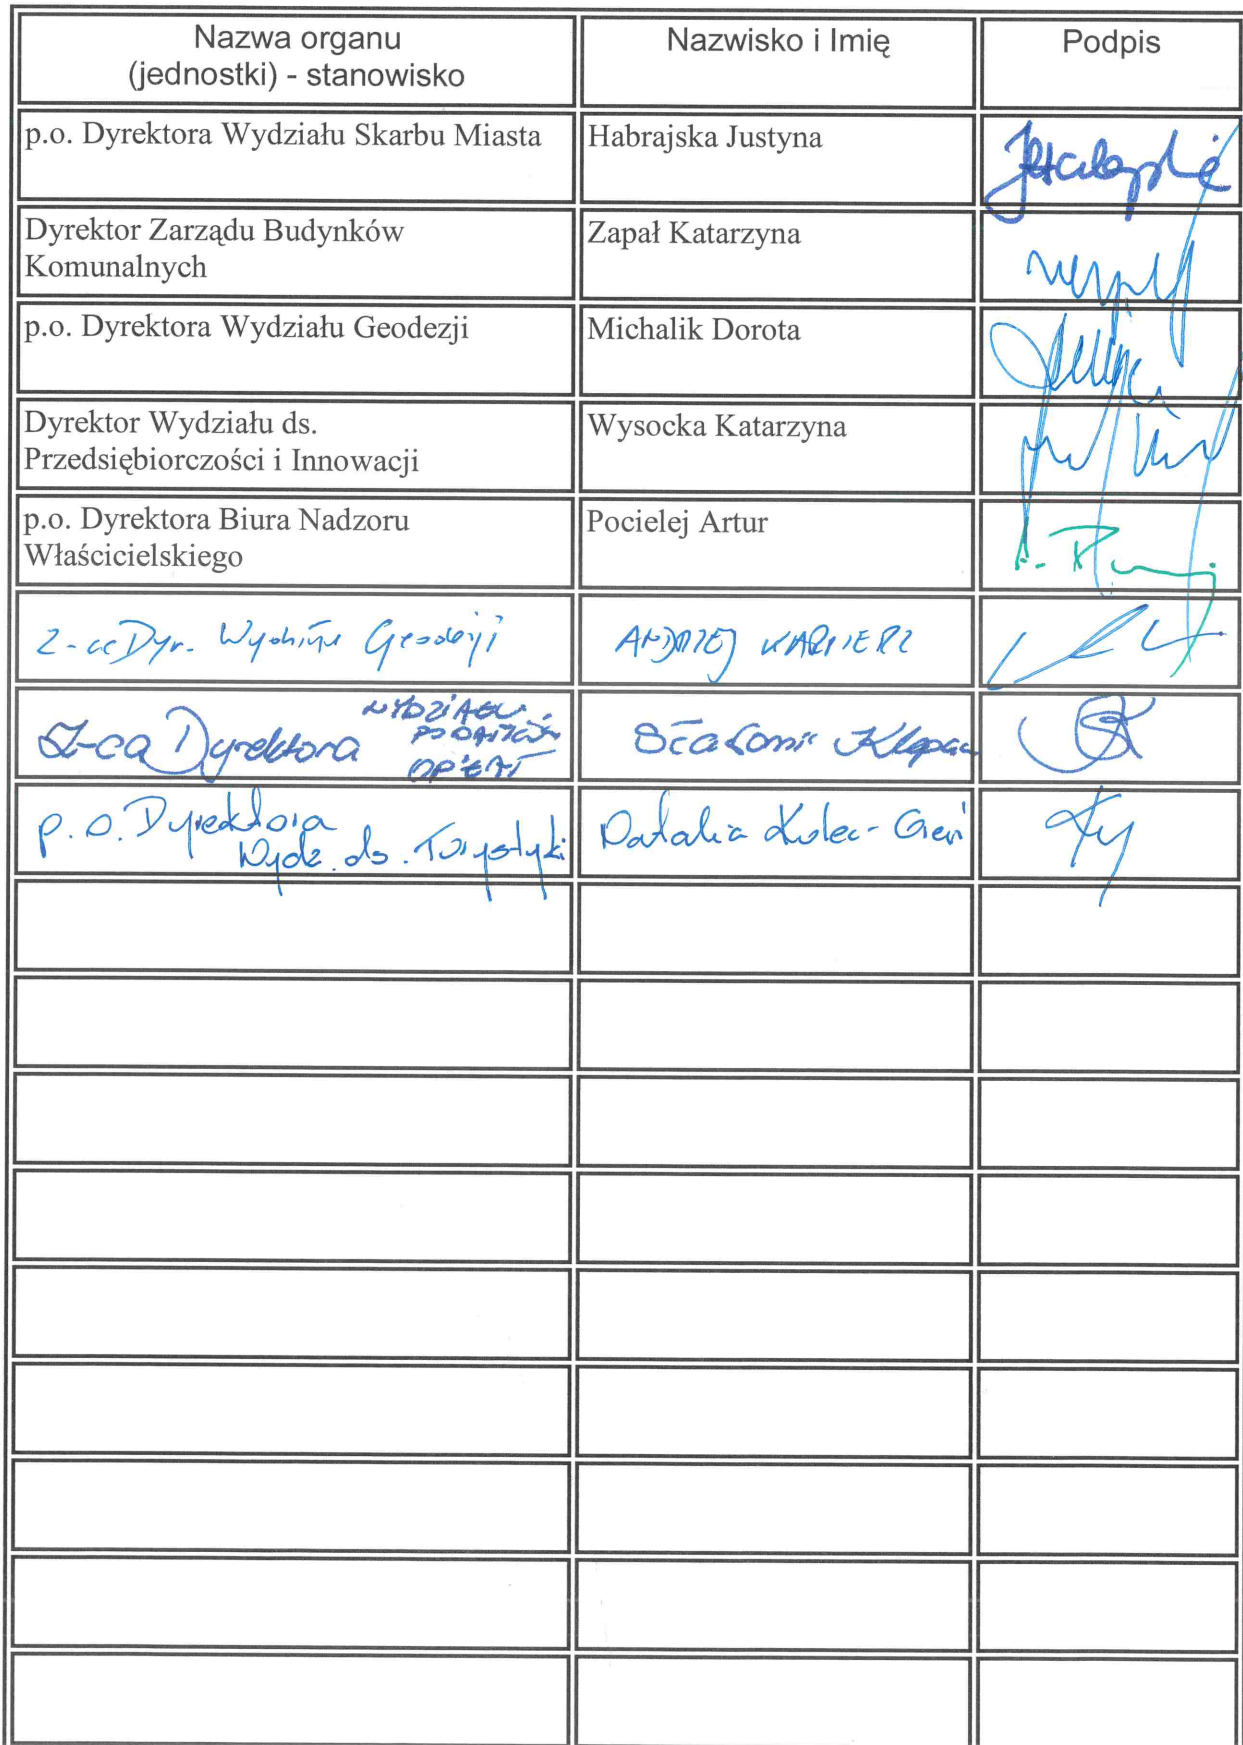 Nazwa organu
(jednostki) - stanowisko
Nazwisko i Imię
Podpis
p.o. Dyrektora Wydziału Skarbu Miasta
Habrajska Justyna
Dyrektor Zarządu Budynków
Komunalnych
Zapał Katarzyna
p.o. Dyrektora Wydziału Geodezji
Michalik Dorota
Dyrektor Wydziału ds.
Przedsiębiorczości i Innowacji
Wysocka Katarzyna
p.o. Dyrektora Biura Nadzoru
Właścicielskiego
Pocielej Artur
Z-ca Dyr. Wydziału Geodezji
ANDRZEJ
Z-ca Dyrektora
WYDZIAŁU
PODATKÓW
OPŁAT
p.o. Dyrektora
Wydz. ds. Turystyki
Natalia